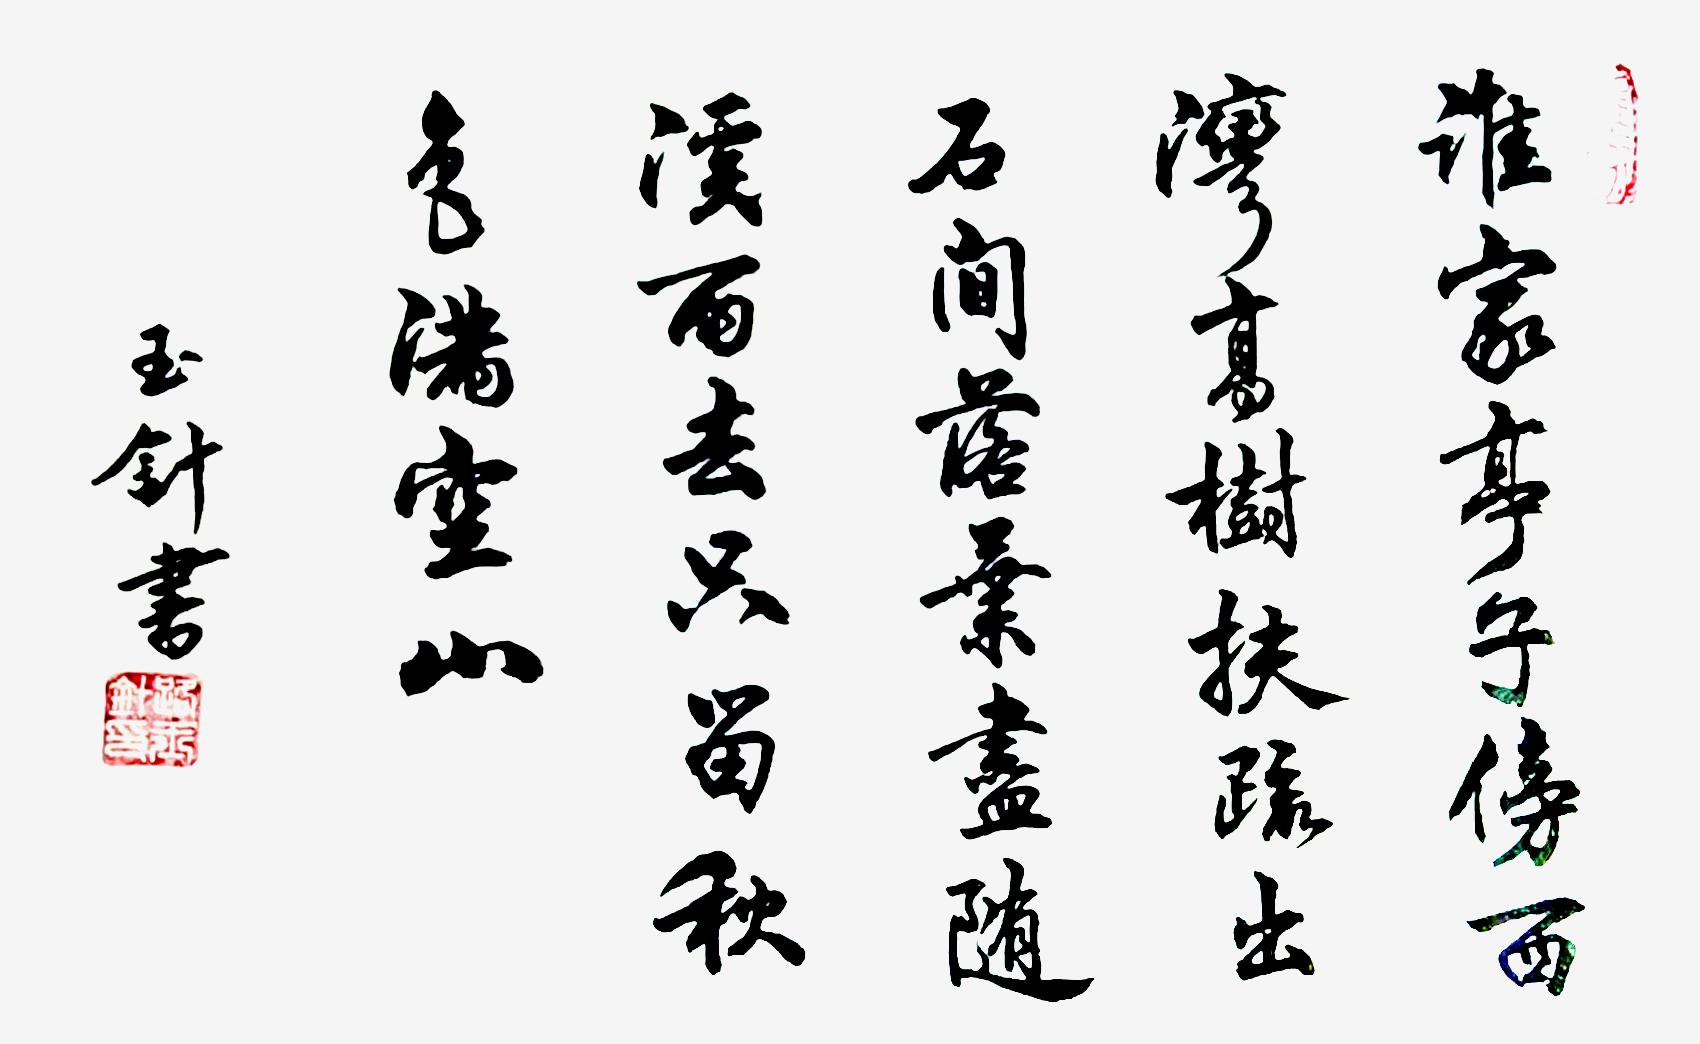 谁家亭子傍西
湾高樹扶疏出
石间落葉盡随
溪雨去只留秋
色满空山
玉針書